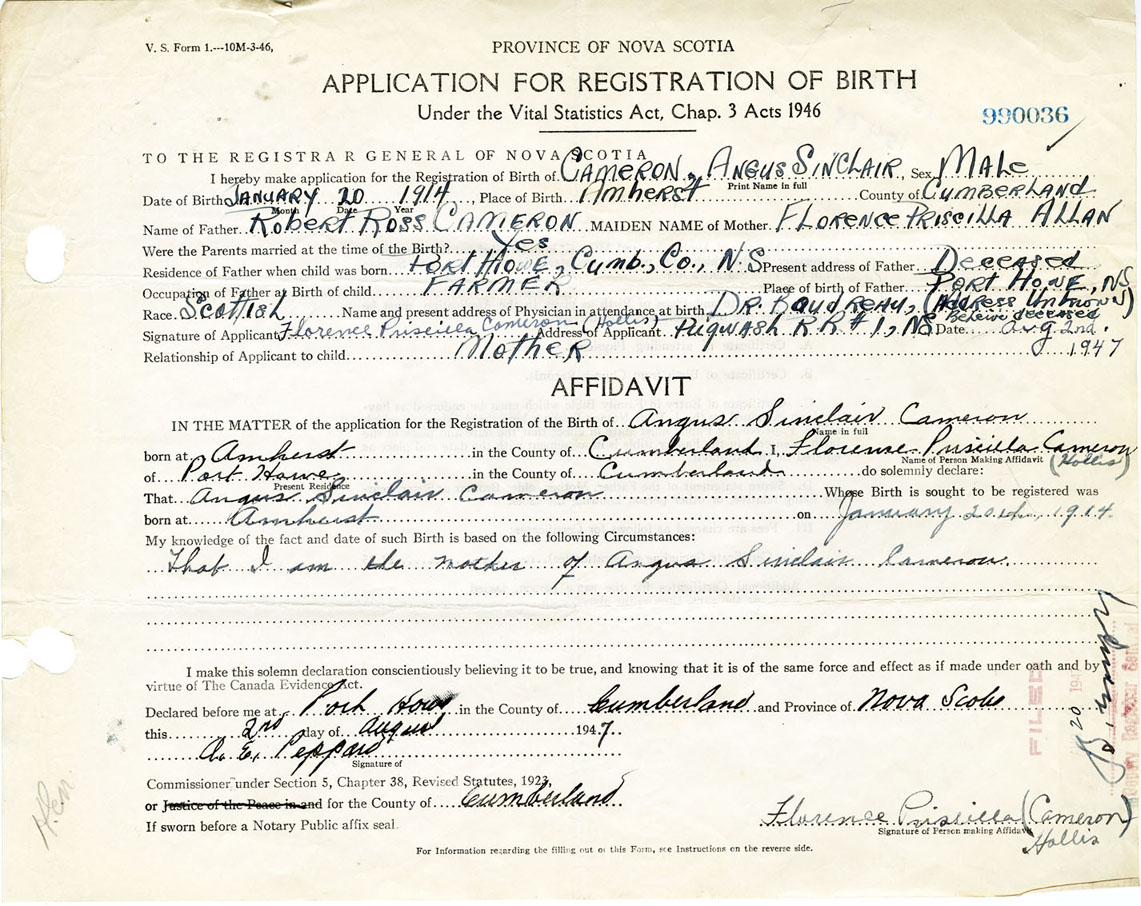 V. S. Form 1.---10M-3-46,
PROVINCE OF NOVA SCOTIA
APPLICATION FOR REGISTRATION OF BIRTH
Under the Vital Statistics Act, Chap. 3 Acts 1946
990036
TO THE REGISTRAR GENERAL OF NOVA SCOTIA
I hereby make application for the Registration of Birth of CAMERON, ANGUS SINCLAIR, Sex MALE
Print Name in full
Date of Birth JANUARY 20 1914, Place of Birth Amherst County of CUMBERLAND
Month Date Year
Name of Father Robert Ross CAMERON MAIDEN NAME of Mother FLORENCE PRISCILLA ALLAN
Were the Parents married at the time of the Birth? Yes
Residence of Father when child was born PORT HOWE, Cumb., Co., N.S Present address of Father Deceased
Occupation of Father at Birth of child FARMER Place of birth of Father PORT HOWE, NS
Race Scottish Name and present address of Physician in attendance at birth DR. BOUDREAU, (Address Unknown)
Believe deceased
Signature of Applicant Florence Priscilla Cameron (Hollis) Address of Applicant Pugwash R.R #1, NS Date Aug 2nd. 1947
Relationship of Applicant to child Mother
AFFIDAVIT
IN THE MATTER of the application for the Registration of Birth of Angus Sinclair Cameron
Name in full
born at Amherst in the County of Cumberland I, Florence Priscilla Cameron (Hollis)
Name of Person Making Affidavit
of Port Howe in the County of Cumberland do solemnly declare:
Present Residence
That Angus Sinclair Cameron Whose Birth is sought to be registered was
born at Amherst on January 20th, 1914
My knowledge of the fact and date of such Birth is based on the following Circumstances:
That I am the mother of Angus Sinclair Cameron
I make this solemn declaration conscientiously believing it to be true, and knowing that it is of the same force and effect as if made under oath and by
virtue of The Canada Evidence Act.
Declared before me at Port Howe in the County of Cumberland and Province of Nova Scotia
this 2nd day of August 1947
A. E. Peppard
Signature of
Commissioner under Section 5, Chapter 38, Revised Statutes, 1923,
or Justice of the Peace in and for the County of Cumberland
If sworn before a Notary Public affix seal.
Florence Priscilla (Cameron)
Signature of Person making Affidavit
Hollis
For Information regarding the filling out of this Form, see Instructions on the reverse side.
FILED